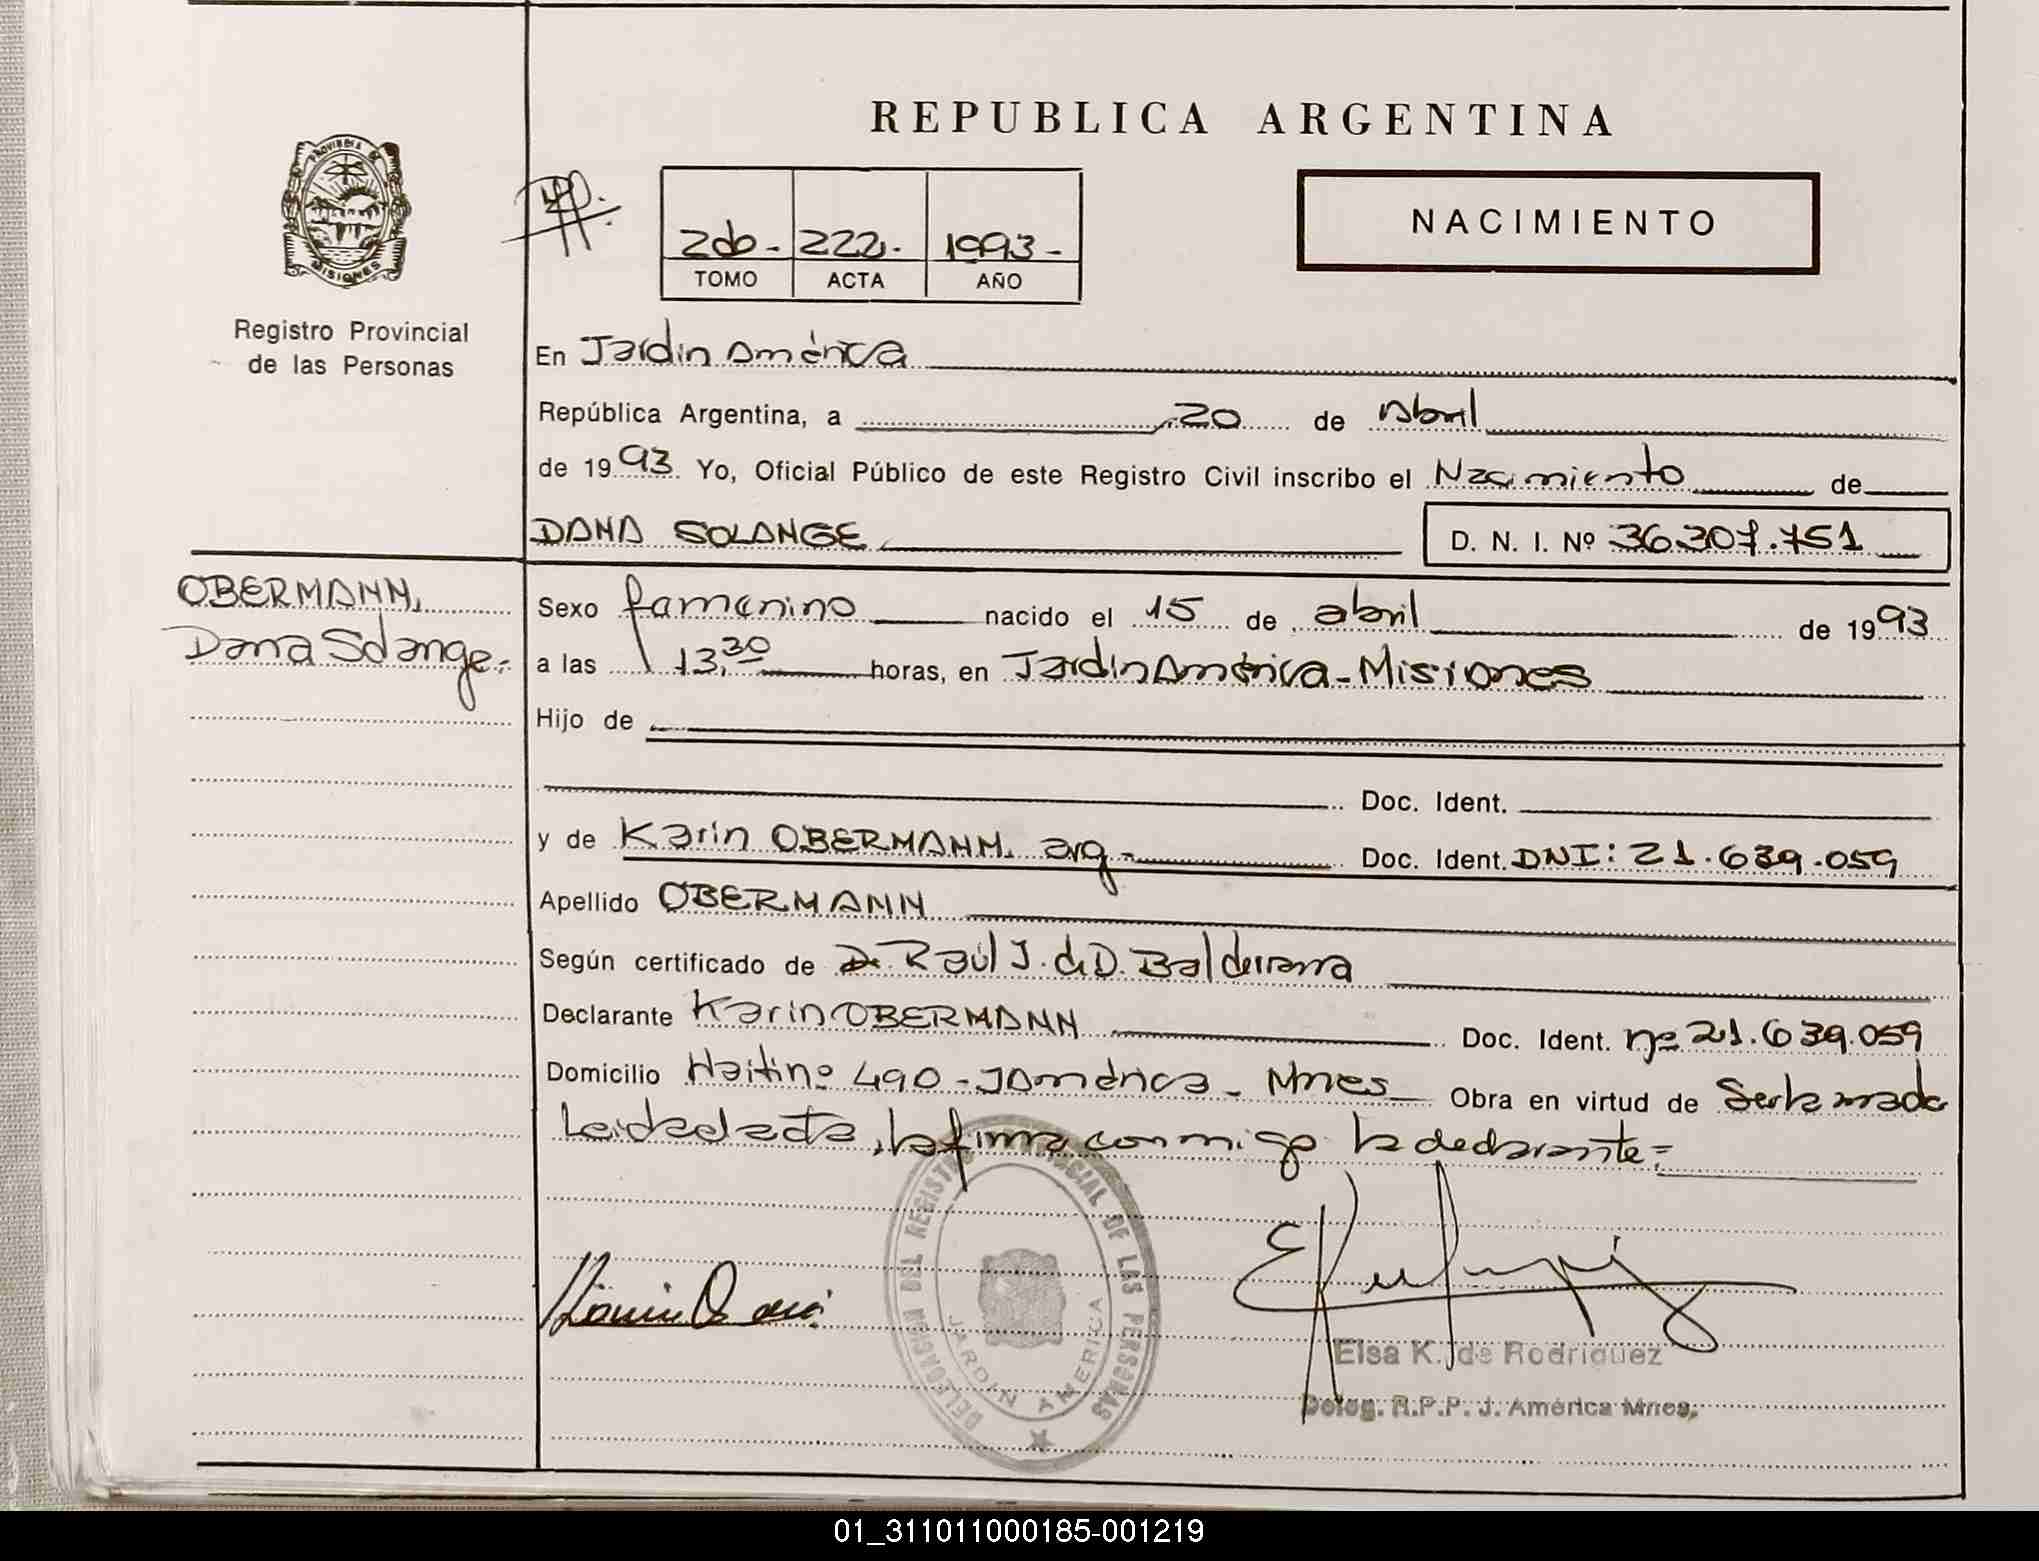 REPUBLICA ARGENTINA
PROVINCIA DE
MISIONES
Registro Provincial
de las Personas
2do - 222 - 1993 -
TOMO ACTA AÑO
NACIMIENTO
En Jardin América
República Argentina, a 20 de Abril
de 1993 Yo, Oficial Público de este Registro Civil inscribo el Nacimiento de
DANA SOLANGE D. N. I. Nº 36.307.751
OBERMANN,
Dana Solange.-
Sexo femenino nacido el 15 de abril de 1993
a las 13,30 horas, en Jardin América - Misiones
Hijo de
Doc. Ident.
y de Karin OBERMANN. arg - Doc. Ident. DNI: 21.639.059
Apellido OBERMANN
Según certificado de Dr. Raúl J. de D. Balderrama
Declarante Karin OBERMANN Doc. Ident. nº 21.639.059
Domicilio Haiti nº 490 - J América - Mnes Obra en virtud de Ser la madre
Leida el acta, la firma conmigo la declarante =
DELEGACION DEL REGISTRO PROVINCIAL DE LAS PERSONAS
JARDIN AMERICA
Elsa K. de Rodriguez
Deleg. R.P.P. J. América Mnes.
01_311011000185-001219